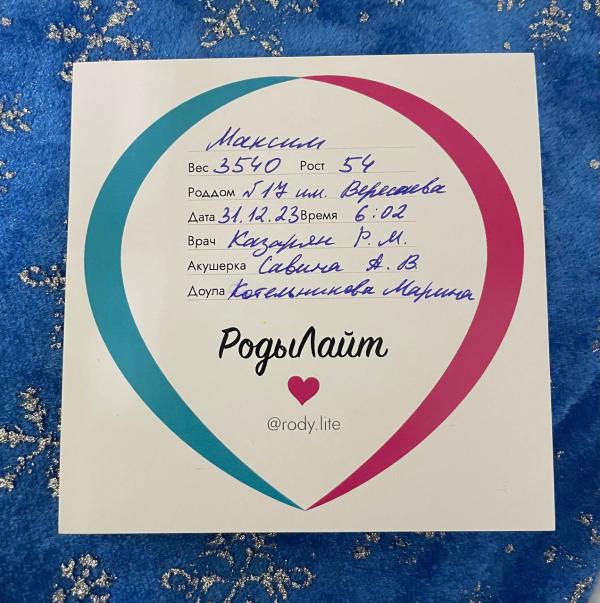 Максим
Вес 3540 Рост 54
Роддом №17 им. Вересаева
Дата 31.12.23 Время 6:02
Врач Казарян Р. М.
Акушерка Савина А. В.
Доула Котельникова Марина
РодыЛайт
@rody.lite